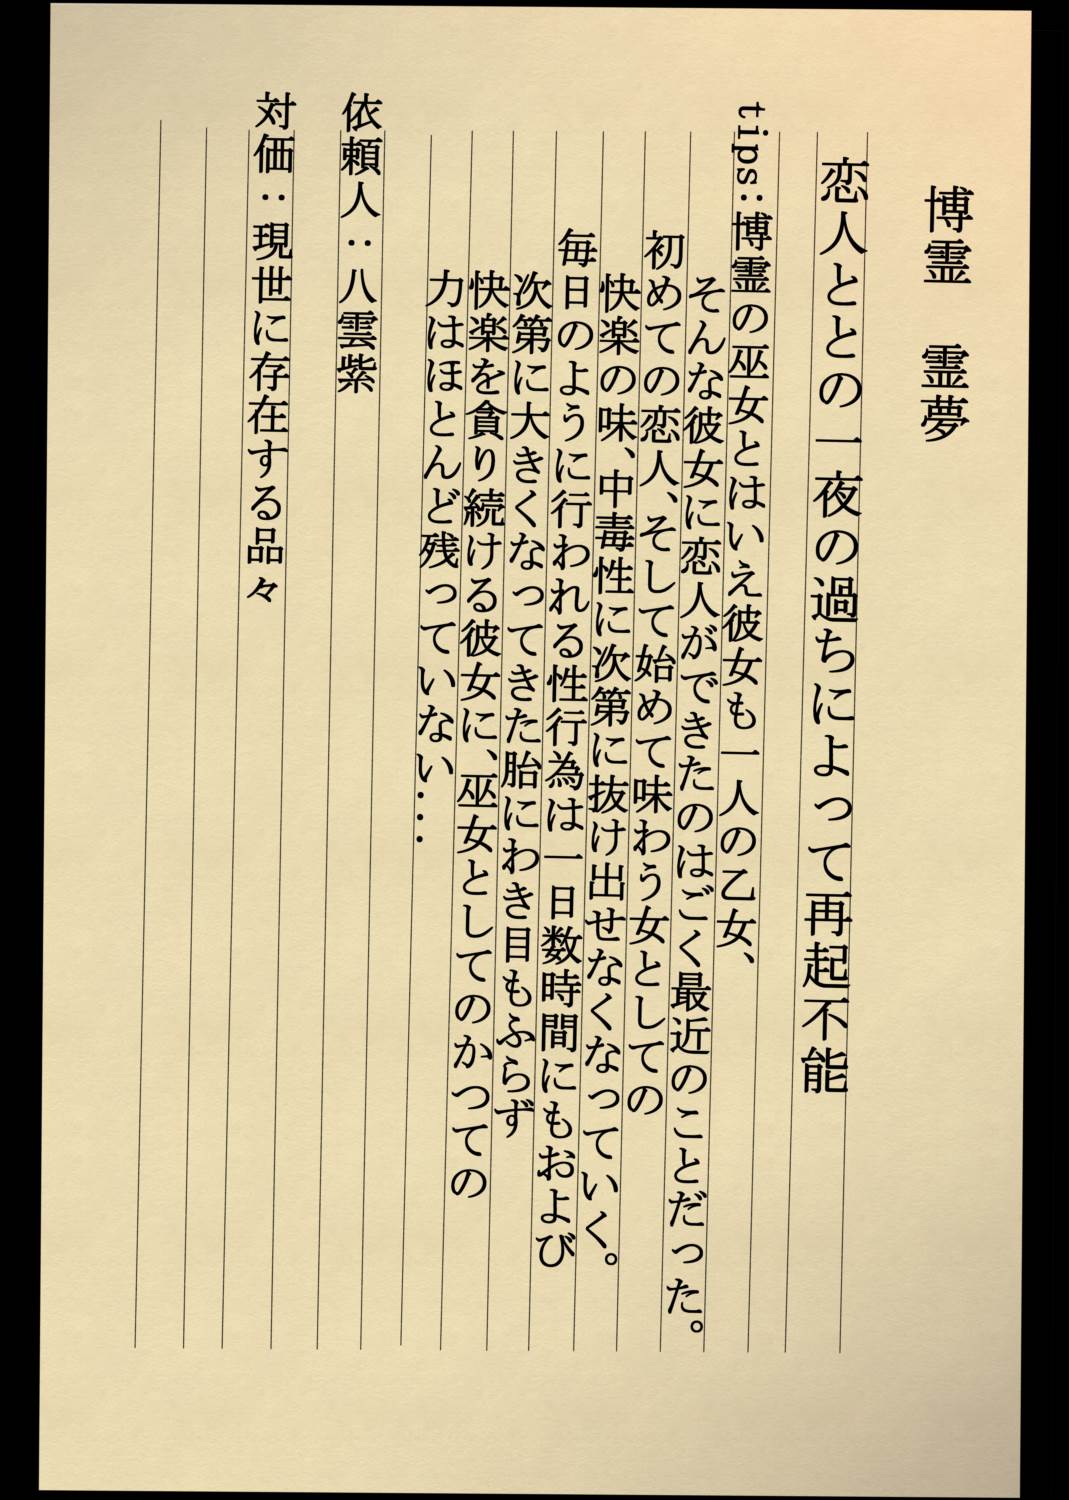 博霊　霊夢
恋人ととの一夜の過ちによって再起不能
tips：博霊の巫女とはいえ彼女も一人の乙女、
そんな彼女に恋人ができたのはごく最近のことだった。
初めての恋人、そして始めて味わう女としての
快楽の味、中毒性に次第に抜け出せなくなっていく。
毎日のように行われる性行為は一日数時間にもおよび
次第に大きくなってきた胎にわき目もふらず
快楽を貪り続ける彼女に、巫女としてのかつての
力はほとんど残っていない....
依頼人：八雲紫
対価：現世に存在する品々